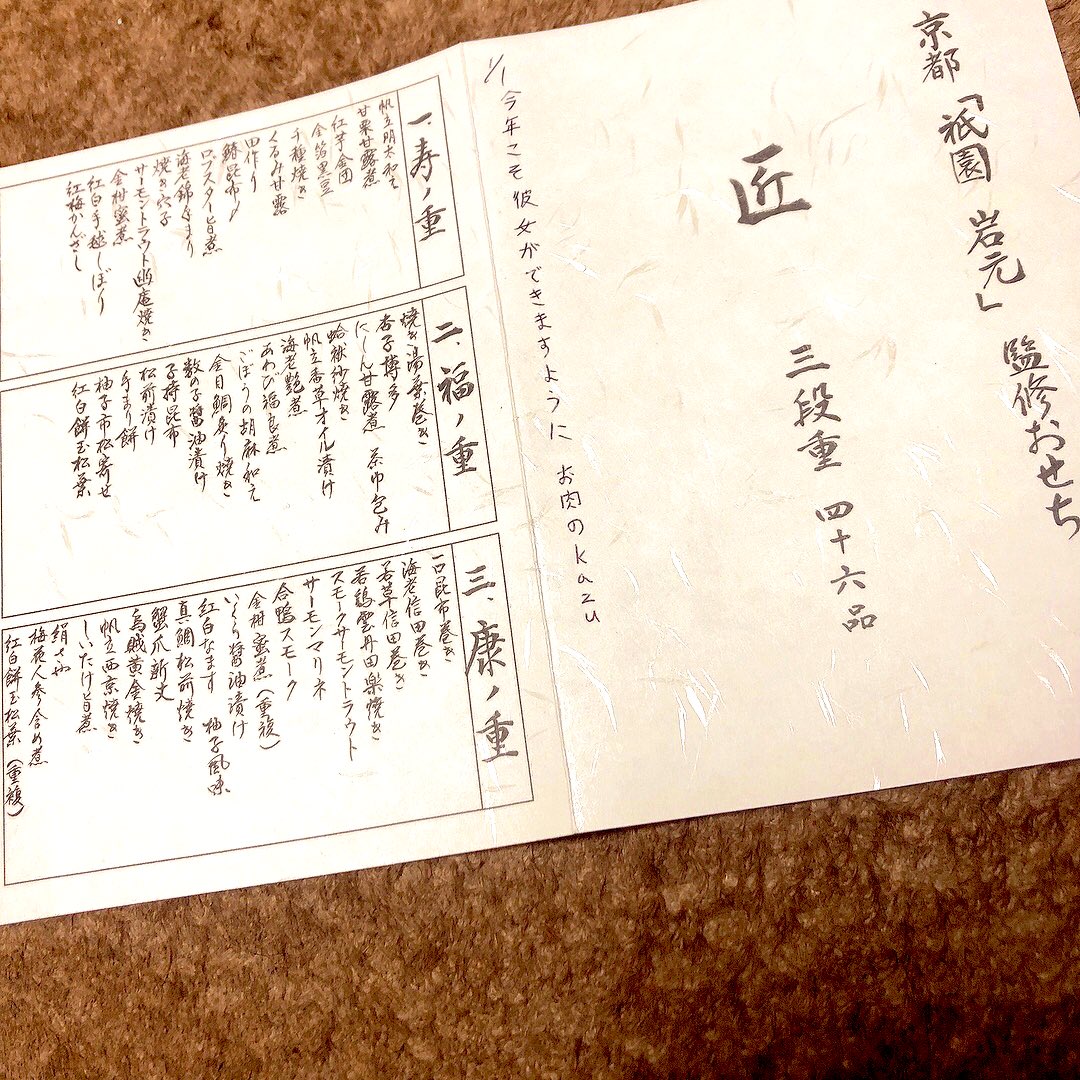 京都「祇園 岩元」監修おせち
匠
三段重 四十六品
1/1 今年こそ彼女ができますように お肉のkazu
一、寿ノ重
帆立明太和え
甘栗甘露煮
紅芋金団
金箔黒豆
千種焼き
くるみ甘露
田作り
鰊昆布〆
ロブスター旨煮
海老錦手まり
焼き穴子
サーモントラウト幽庵焼き
金柑蜜煮
紅白手越しぼり
紅梅かんざし
二、福ノ重
焼き湯葉巻き
杏子博多
にしん甘露煮 茶巾包み
蛤袱紗焼き
帆立香草オイル漬け
海老艶煮
あわび福良煮
ごぼうの胡麻和え
金目鯛炙り焼き
数の子醤油漬け
子持昆布
松前漬け
手まり餅
柚子市松寄せ
紅白餅玉松葉
三、康ノ重
一口昆布巻き
海老信田巻き
若草信田巻き
若鶏雲丹田楽焼き
スモークサーモントラウト
サーモンマリネ
合鴨スモーク
金柑蜜煮(重複)
いくら醤油漬け
紅白なます 柚子風味
真鯛松前焼き
蟹爪新丈
烏賊黄金焼き
帆立西京焼き
しいたけ旨煮
絹さや
梅花人参含め煮
紅白餅玉松葉(重複)